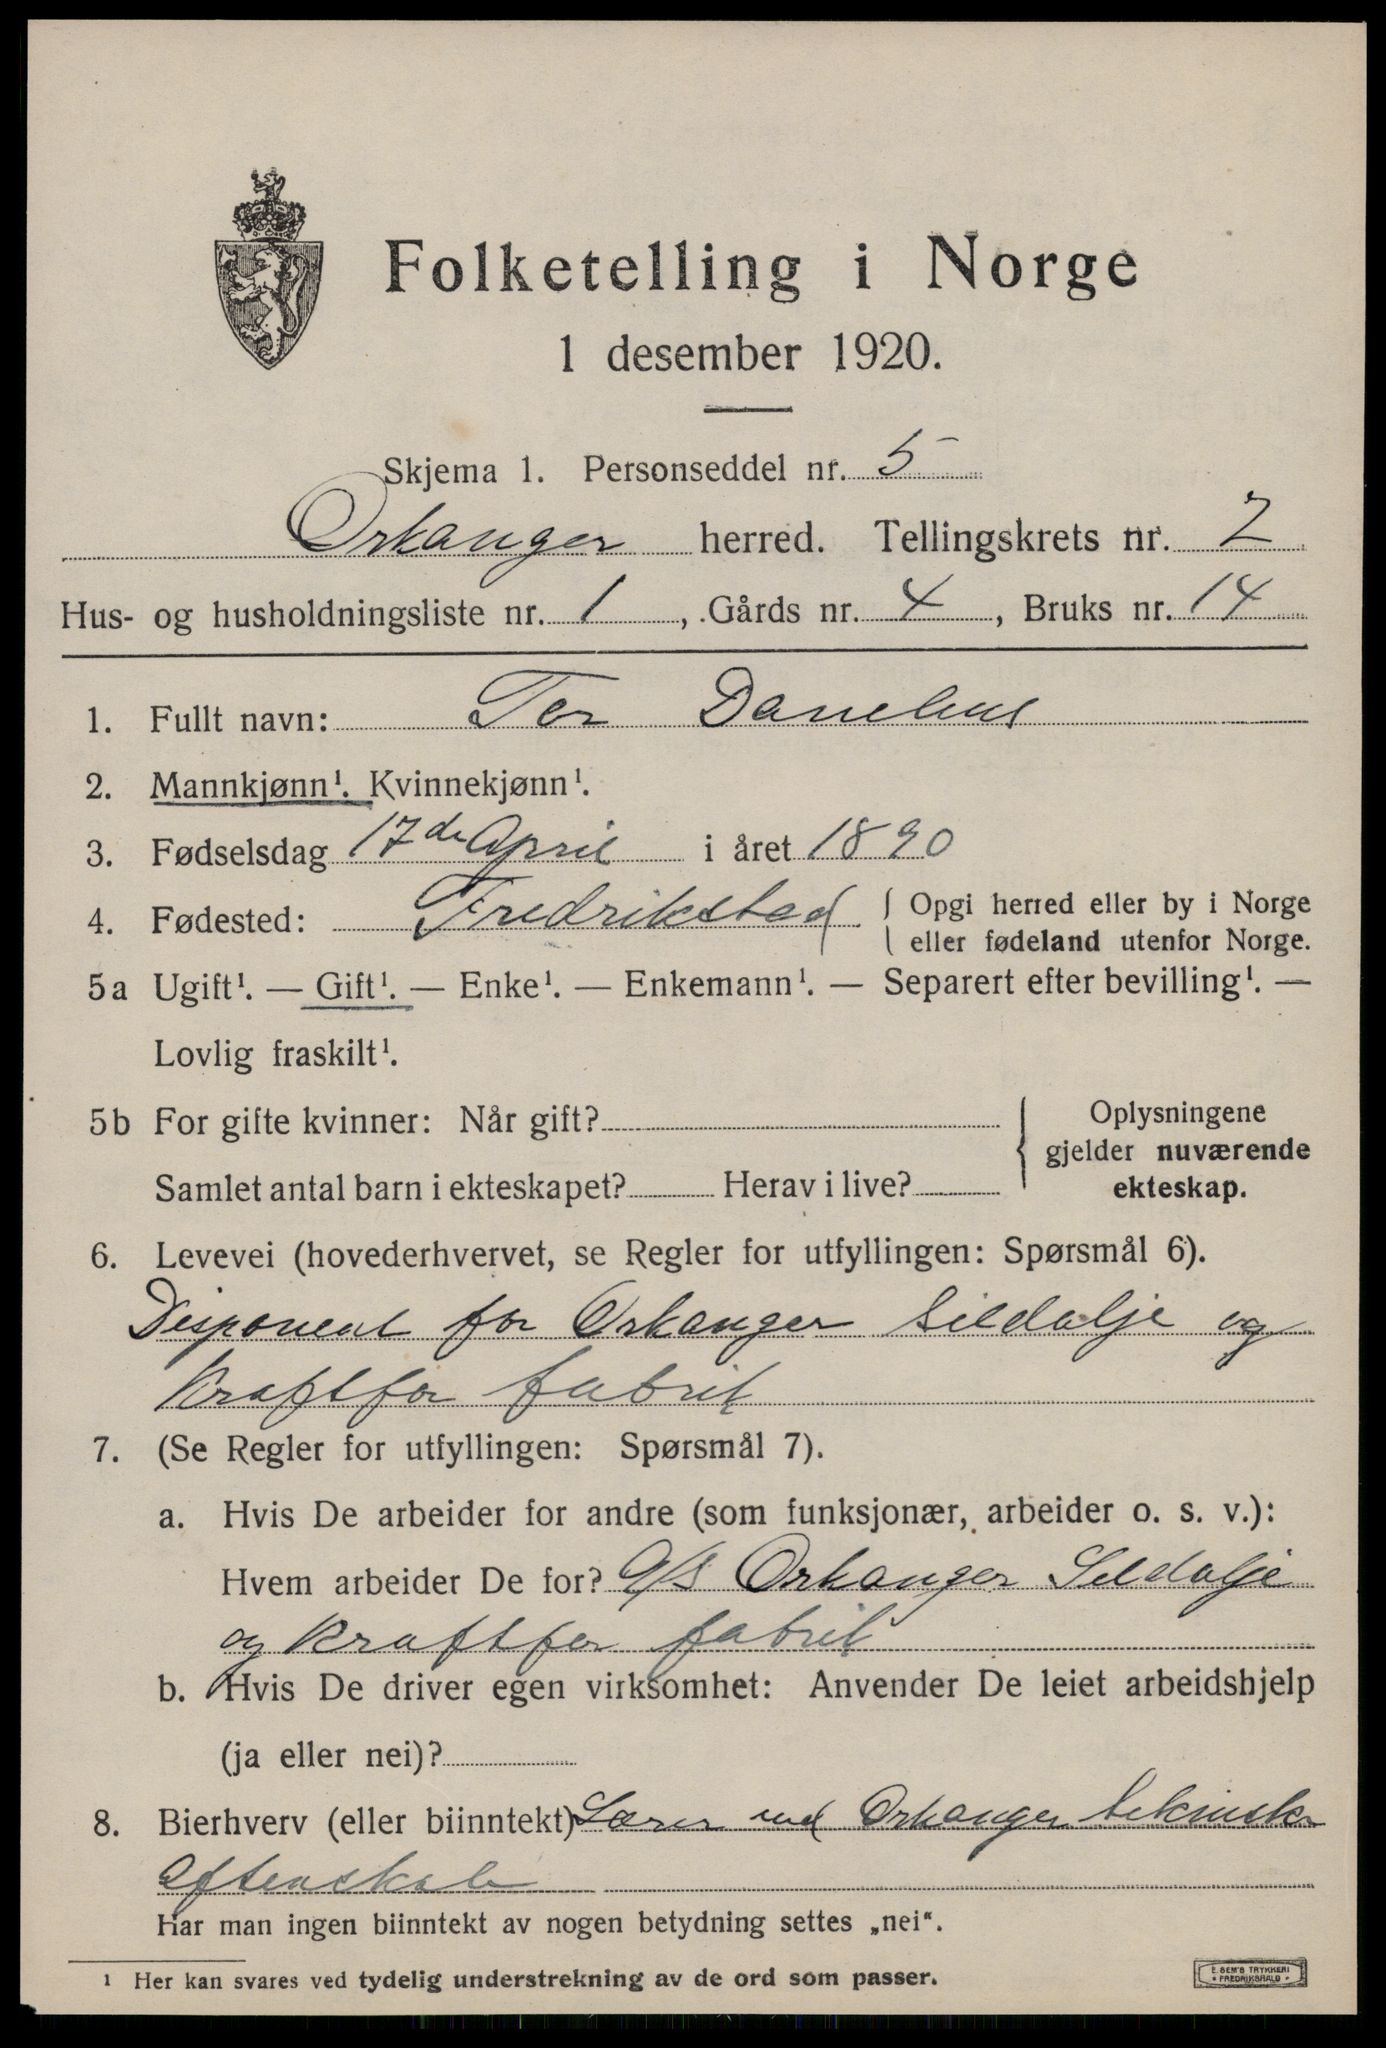 Folketelling i Norge
1 desember 1920.
Skjema 1. Personseddel nr. 5
Orkanger herred. Tellingskrets nr. 2
Hus- og husholdningsliste nr. 1, Gårds nr. 4, Bruks nr. 14
1. Fullt navn: Tor
2. Mannkjønn¹. Kvinnekjønn¹.
3. Fødselsdag 17de April i året 1890
4. Fødested: Fredrikstad { Opgi herred eller by i Norge
eller fødeland utenfor Norge.
5a Ugift¹. — Gift¹. — Enke¹. — Enkemann¹. — Separert efter bevilling¹. —
Lovlig fraskilt¹.
5b For gifte kvinner: Når gift? { Oplysningene
gjelder nuværende
Samlet antal barn i ekteskapet? Herav i live? ekteskap.
6. Levevei (hovederhvervet, se Regler for utfyllingen: Spørsmål 6).
Disponent for Orkanger Sildolje og
Kraftfor fabrik
7. (Se Regler for utfyllingen: Spørsmål 7).
a. Hvis De arbeider for andre (som funksjonær, arbeider o. s. v.):
Hvem arbeider De for? A/S Orkanger Sildolje
og Kraftfor fabrik
b. Hvis De driver egen virksomhet: Anvender De leiet arbeidshjelp
(ja eller nei)?
8. Bierhverv (eller biinntekt) Lærer ved Orkanger tekniske
Aftenskole
Har man ingen biinntekt av nogen betydning settes „nei“.
1 Her kan svares ved tydelig understrekning av de ord som passer.
E. SEM'S TRYKKERI
* FREDRIKSHALD *